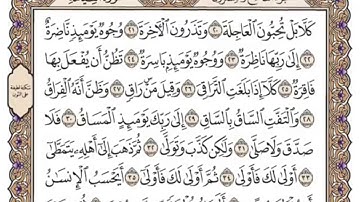 كَلَّا بَلْ تُحِبُّونَ ٱلْعَاجِلَةَ ٢٠ وَتَذَرُونَ ٱلْآخِرَةَ ٢١ وُجُوهٌ يَوْمَئِذٍ نَّاضِرَةٌ ٢٢
إِلَىٰ رَبِّهَا نَاظِرَةٌ ٢٣ وَوُجُوهٌ يَوْمَئِذٍۭ بَاسِرَةٌ ٢٤ تَظُنُّ أَن يُفْعَلَ بِهَا
فَاقِرَةٌ ٢٥ كَلَّا إِذَا بَلَغَتِ ٱلتَّرَاقِىَ ٢٦ وَقِيلَ مَنْ رَاقٍ ٢٧ وَظَنَّ أَنَّهُ ٱلْفِرَاقُ
٢٨ وَٱلْتَفَّتِ ٱلسَّاقُ بِٱلسَّاقِ ٢٩ إِلَىٰ رَبِّكَ يَوْمَئِذٍ ٱلْمَسَاقُ ٣٠ فَلَا
صَدَّقَ وَلَا صَلَّىٰ ٣١ وَلَٰكِن كَذَّبَ وَتَوَلَّىٰ ٣٢ ثُمَّ ذَهَبَ إِلَىٰ أَهْلِهِۦ يَتَمَطَّىٰ
٣٣ أَوْلَىٰ لَكَ فَأَوْلَىٰ ٣٤ ثُمَّ أَوْلَىٰ لَكَ فَأَوْلَىٰ ٣٥ أَيَحْسَبُ ٱلْإِنسَٰنُ